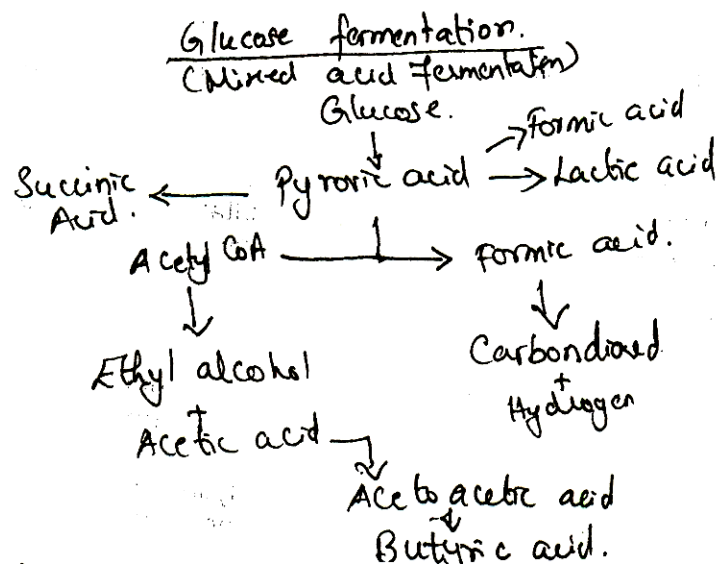 Glucose fermentation.
(Mixed acid Fermentation)
Glucose.
Formic acid
Succinic Acid.
Pyrovic acid
Lactic acid
Acetyl CoA
Formic acid.
Ethyl alcohol
+
Acetic acid
Carbondioxed
+
Hydrogen
Aceto acetic acid
Butyric acid.